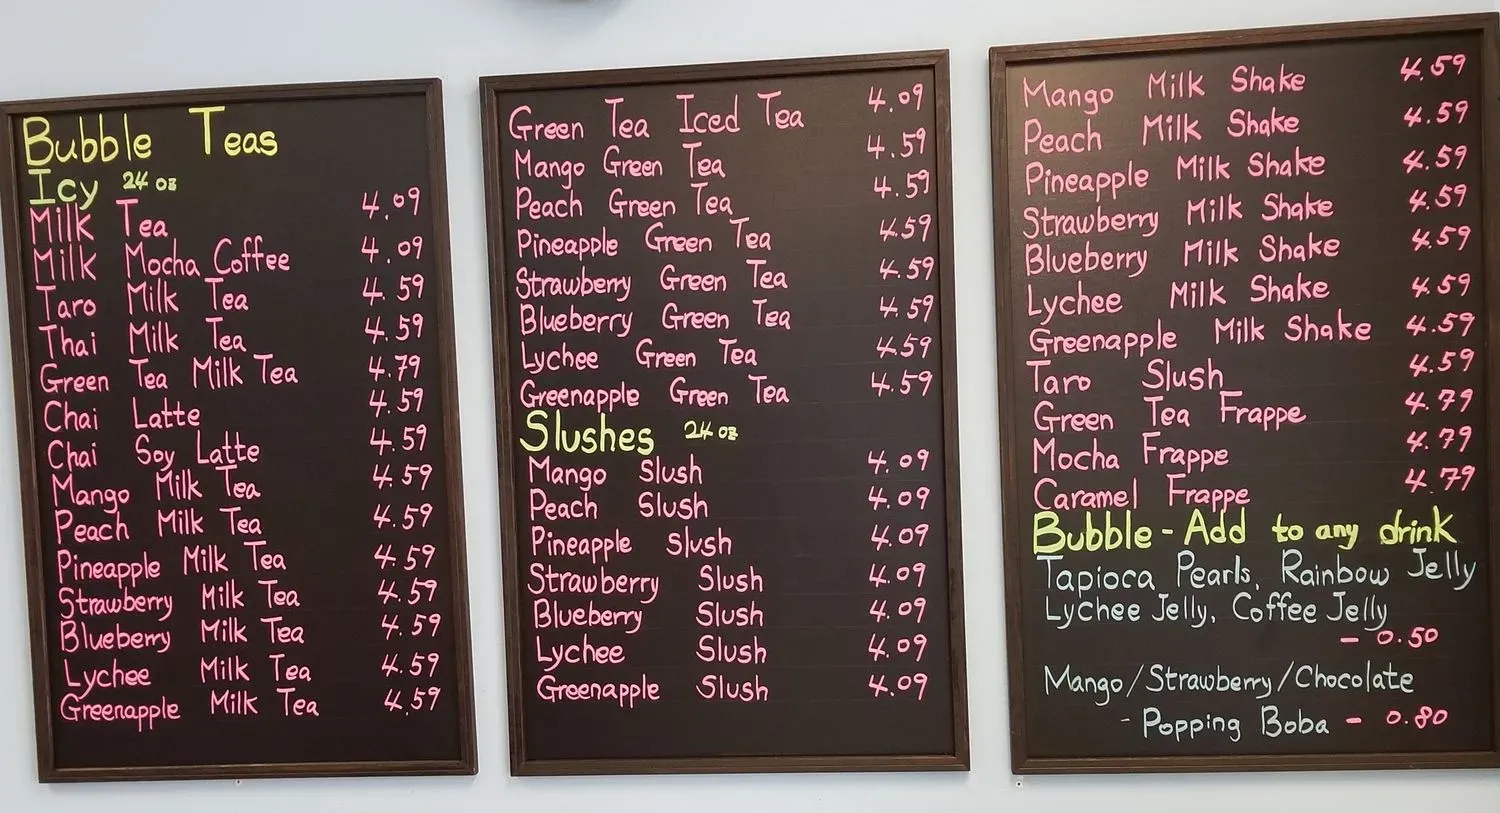 Bubble Teas
Icy 24 oz
Milk Tea 4.09
Milk Mocha Coffee 4.09
Taro Milk Tea 4.59
Thai Milk Tea 4.59
Green Tea Milk Tea 4.79
Chai Latte 4.59
Chai Soy Latte 4.59
Mango Milk Tea 4.59
Peach Milk Tea 4.59
Pineapple Milk Tea 4.59
Strawberry Milk Tea 4.59
Blueberry Milk Tea 4.59
Lychee Milk Tea 4.59
Greenapple Milk Tea 4.59
Green Tea Iced Tea 4.09
Mango Green Tea 4.59
Peach Green Tea 4.59
Pineapple Green Tea 4.59
Strawberry Green Tea 4.59
Blueberry Green Tea 4.59
Lychee Green Tea 4.59
Greenapple Green Tea 4.59
Slushes 24 oz
Mango Slush 4.09
Peach Slush 4.09
Pineapple Slush 4.09
Strawberry Slush 4.09
Blueberry Slush 4.09
Lychee Slush 4.09
Greenapple Slush 4.09
Mango Milk Shake 4.59
Peach Milk Shake 4.59
Pineapple Milk Shake 4.59
Strawberry Milk Shake 4.59
Blueberry Milk Shake 4.59
Lychee Milk Shake 4.59
Greenapple Milk Shake 4.59
Taro Slush 4.59
Green Tea Frappe 4.79
Mocha Frappe 4.79
Caramel Frappe 4.79
Bubble - Add to any drink
Tapioca Pearls, Rainbow Jelly
Lychee Jelly, Coffee Jelly
- 0.50
Mango/Strawberry/Chocolate
- Popping Boba - 0.80